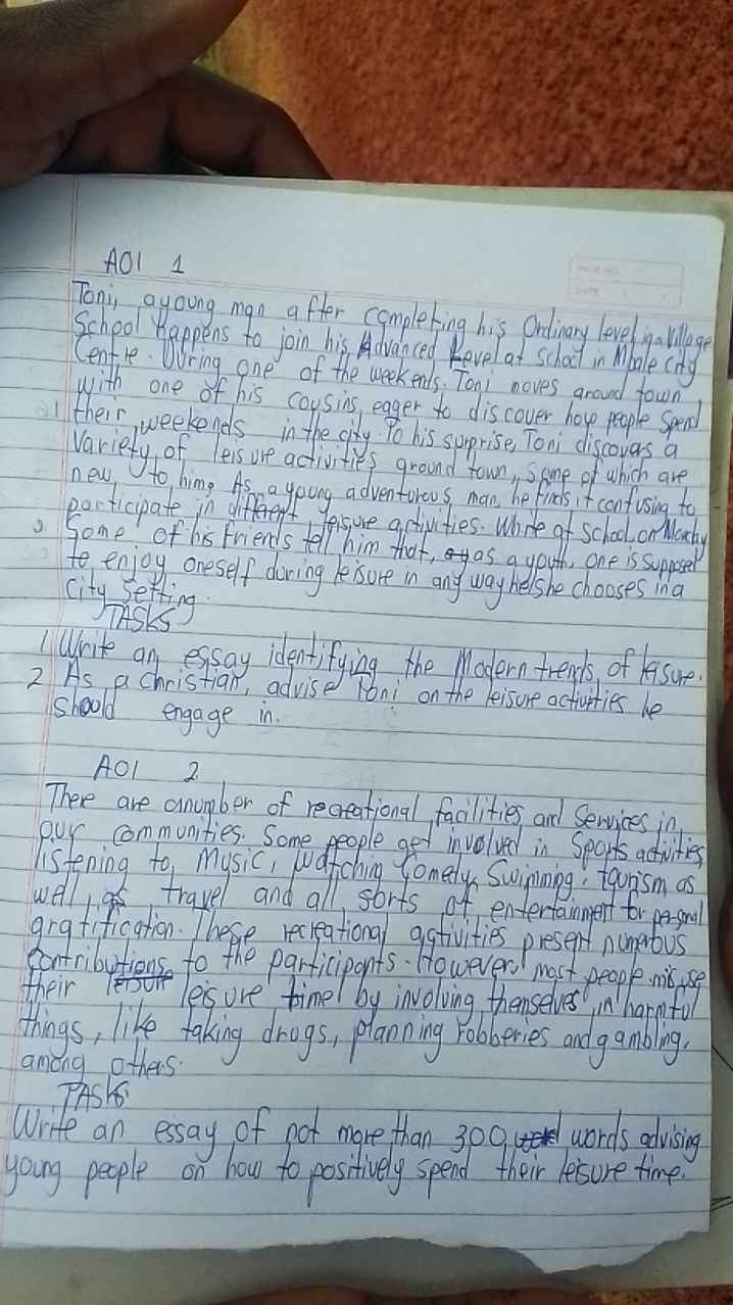 AOI 1
Toni, a young man after completing his Ordinary level in a Village
School happens to join his Advanced Level at School in Mbale City
Centre. During one of the weekends. Toni moves around town
with one of his cousins, eager to discover how people spend
their weekends in the city. To his surprise, Toni discovers a
Variety of leisure activities around town, some of which are
new to him. As a young adventurous man, he finds it confusing to
participate in different leisure activities. While at School on Monday
Some of his friends tell him that, as a youth, one is supposed
to enjoy oneself during leisure in any way he/she chooses in a
City Setting.
TASKS
1 Write an essay identifying the Modern trends of leisure.
2 As a Christian, advise Toni on the leisure activities he
should engage in.
AOI 2
There are a number of recreational facilities and Services in
our communities. Some people get involved in Sports activities,
listening to Music, Watching Comedy, Swimming, Tourism as
well as travel and all sorts of entertainment for personal
gratification. These recreational activities present numerous
contributions to the participants. However, most people misuse
their leisure time by involving themselves in harmful
things, like taking drugs, planning robberies and gambling,
among others.
TASKS
Write an essay of not more than 300 words advising
young people on how to positively spend their leisure time.